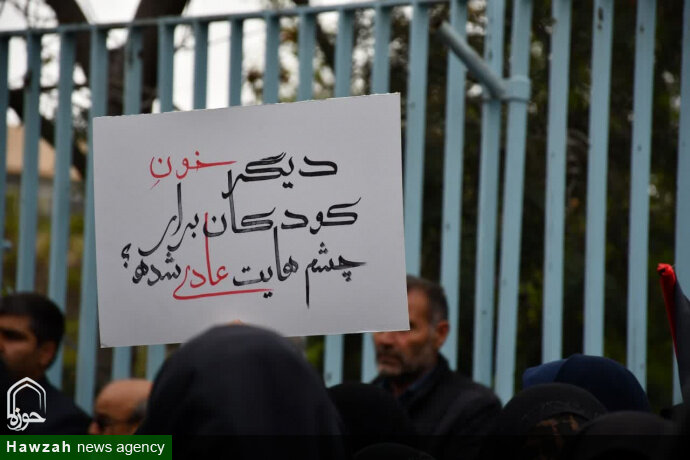 دیگر خونِ
کودکان برای
چشم هایت عادی شده؟
حوزه
Hawzah news agency